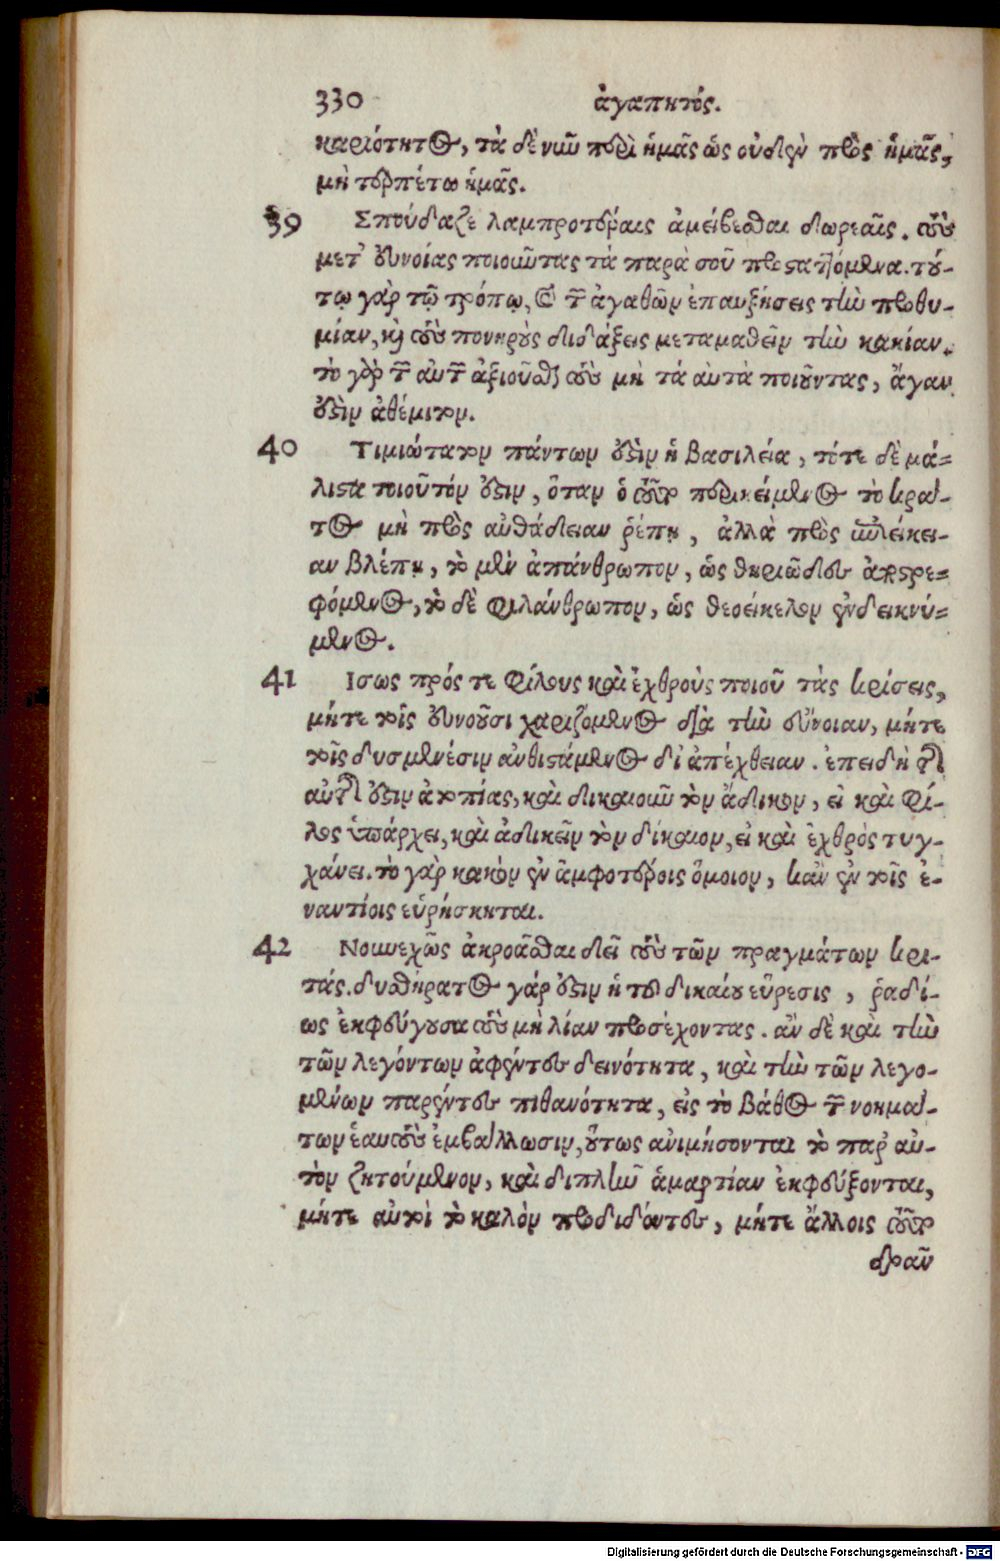 330 ἀγαπητός.
καριότητος, τὰ δὲ νῦν περὶ ἡμᾶς ὡς οὐδὲν πρὸς ἡμᾶς,
μὴ τερπέτω ἡμᾶς.
39 Σπούδαζε λαμπροτέραις ἀμείβεσθαι δωρεαῖς. τοὺς
μετ᾽ εὐνοίας ποιοῦντας τὰ παρὰ σοῦ προσταττόμενα. τού-
τῳ γὰρ τῷ τρόπῳ, καὶ τῶν ἀγαθῶν ἐπαυξήσεις τὴν προθυ-
μίαν, καὶ τοὺς πονηροὺς διδάξεις μεταμαθεῖν τὴν κακίαν.
τὸ γὰρ τῶν αὐτῶν ἀξιοῦσθαι τοὺς μὴ τὰ αὐτὰ ποιοῦντας, ἄγαν
ἐστὶν ἀθέμιτον.
40 Τιμιώτατον πάντων ἐστὶν ἡ βασιλεία, τότε δὲ μά-
λιστα τοιοῦτόν ἐστιν, ὅταν ὁ τοῦτο περικείμενος τὸ κρά-
τος μὴ πρὸς αὐθάδειαν ῥέπῃ, ἀλλὰ πρὸς ἐπιείκει-
αν βλέπῃ, τὸ μὲν ἀπάνθρωπον, ὡς θηριῶδες ἀποστρε-
φόμενος, τὸ δὲ φιλάνθρωπον, ὡς θεοείκελον ἐνδεικνύ-
μενος.
41 Ισως πρός τε φίλους καὶ ἐχθροὺς ποιοῦ τὰς κρίσεις,
μήτε τοῖς εὐνοοῦσι χαριζόμενος διὰ τὴν εὔνοιαν, μήτε
τοῖς δυσμενέσιν ἀνθιστάμενος δι᾽ ἀπέχθειαν. ἐπειδὴ τῆς
αὐτῆς ἐστιν ἀτοπίας, καὶ δικαιοῦν τὸν ἄδικον, εἰ καὶ φί-
λος ὑπάρχει, καὶ ἀδικεῖν τὸν δίκαιον, εἰ καὶ ἐχθρὸς τυγ-
χάνει. τὸ γὰρ κακὸν ἐν ἀμφοτέροις ὅμοιον, κἂν ἐν τοῖς ἐ-
ναντίοις εὑρήσκηται.
42 Νουνεχῶς ἀκροᾶσθαι δεῖ τοὺς τῶν πραγμάτων κρι-
τάς. δυσθήρατος γάρ ἐστιν ἡ τοῦ δικαίου εὕρεσις, ῥαδί-
ως ἐκφεύγουσα τοὺς μὴ λίαν προσέχοντας. ἂν δὲ καὶ τὴν
τῶν λεγόντων ἀφέντες δεινότητα, καὶ τὴν τῶν λεγο-
μένων παρέντες πιθανότητα, εἰς τὸ βάθος τῶν νοημά-
των ἑαυτοὺς ἐμβάλλωσιν, οὕτως ἀνιμήσονται τὸ παρ᾽ αὐ-
τὸν ζητούμενον, καὶ διπλῆν ἁμαρτίαν ἐκφεύξονται,
μήτε αὐτοὶ τὸ καλὸν προδιδόντες, μήτε ἄλλοις τοῦτο
δρᾶν
Digitalisierung gefördert durch die Deutsche Forschungsgemeinschaft - DFG